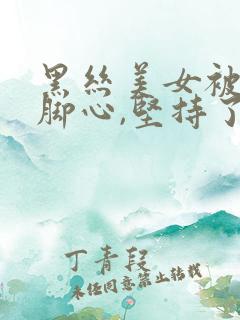 黑丝美女被
脚心,坚持了
丁青段
未经同意禁止转载